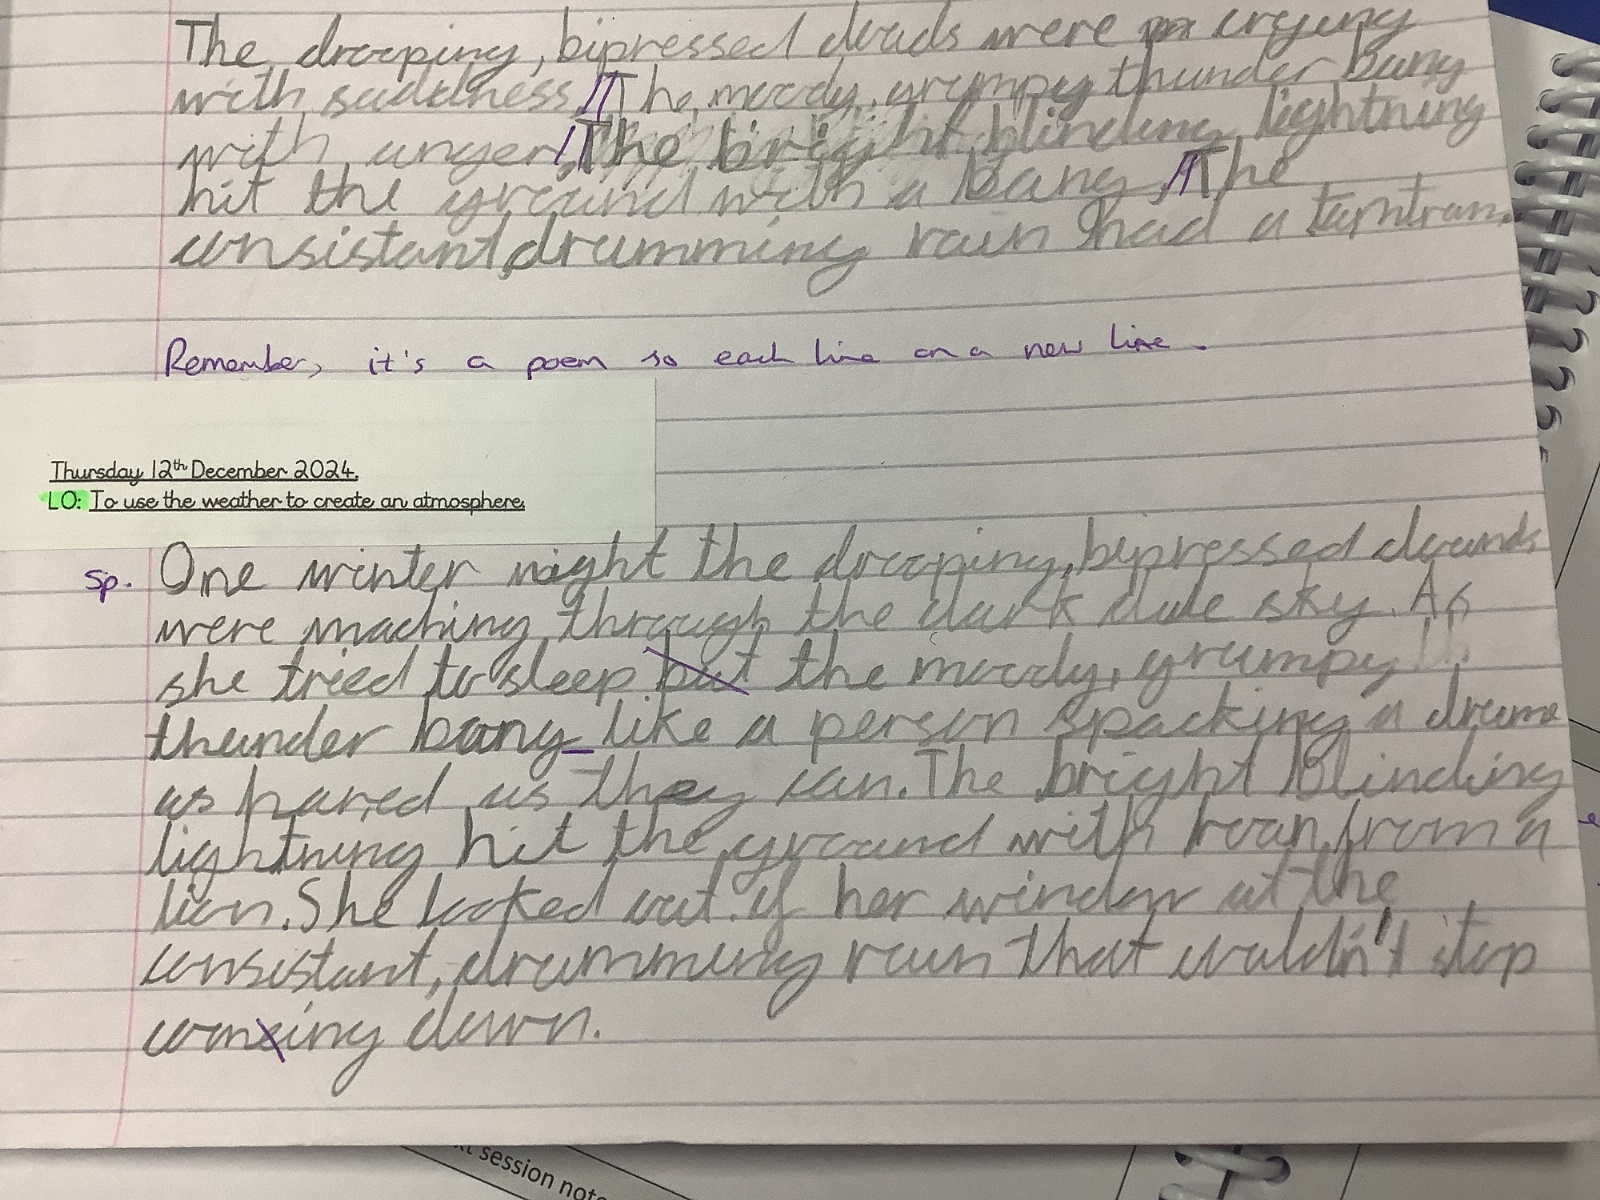 The drooping, bipressed clouds were crying
with saddness // The, moody, grumpy thunder bang
with anger, // The bright, blinding, lightning
hit the ground with a bang, // The
consistant, drumming rain had a tamtram.
Remember, it's a poem so each line on a new line.
Thursday 12th December 2024.
LO: To use the weather to create an atmosphere.
Sp. One winter night the drooping, bipressed clounds
were maching through the dark dule sky. As
she tried to sleep but the moody, grumpy
thunder bang_ like a person spacking a drume
as hared as they can. The bright blinding
lightning hit the ground with roan from a
lion. She looked out of her window at the
consistant, drumming rain that wouldn't stop
comeing down.
session note